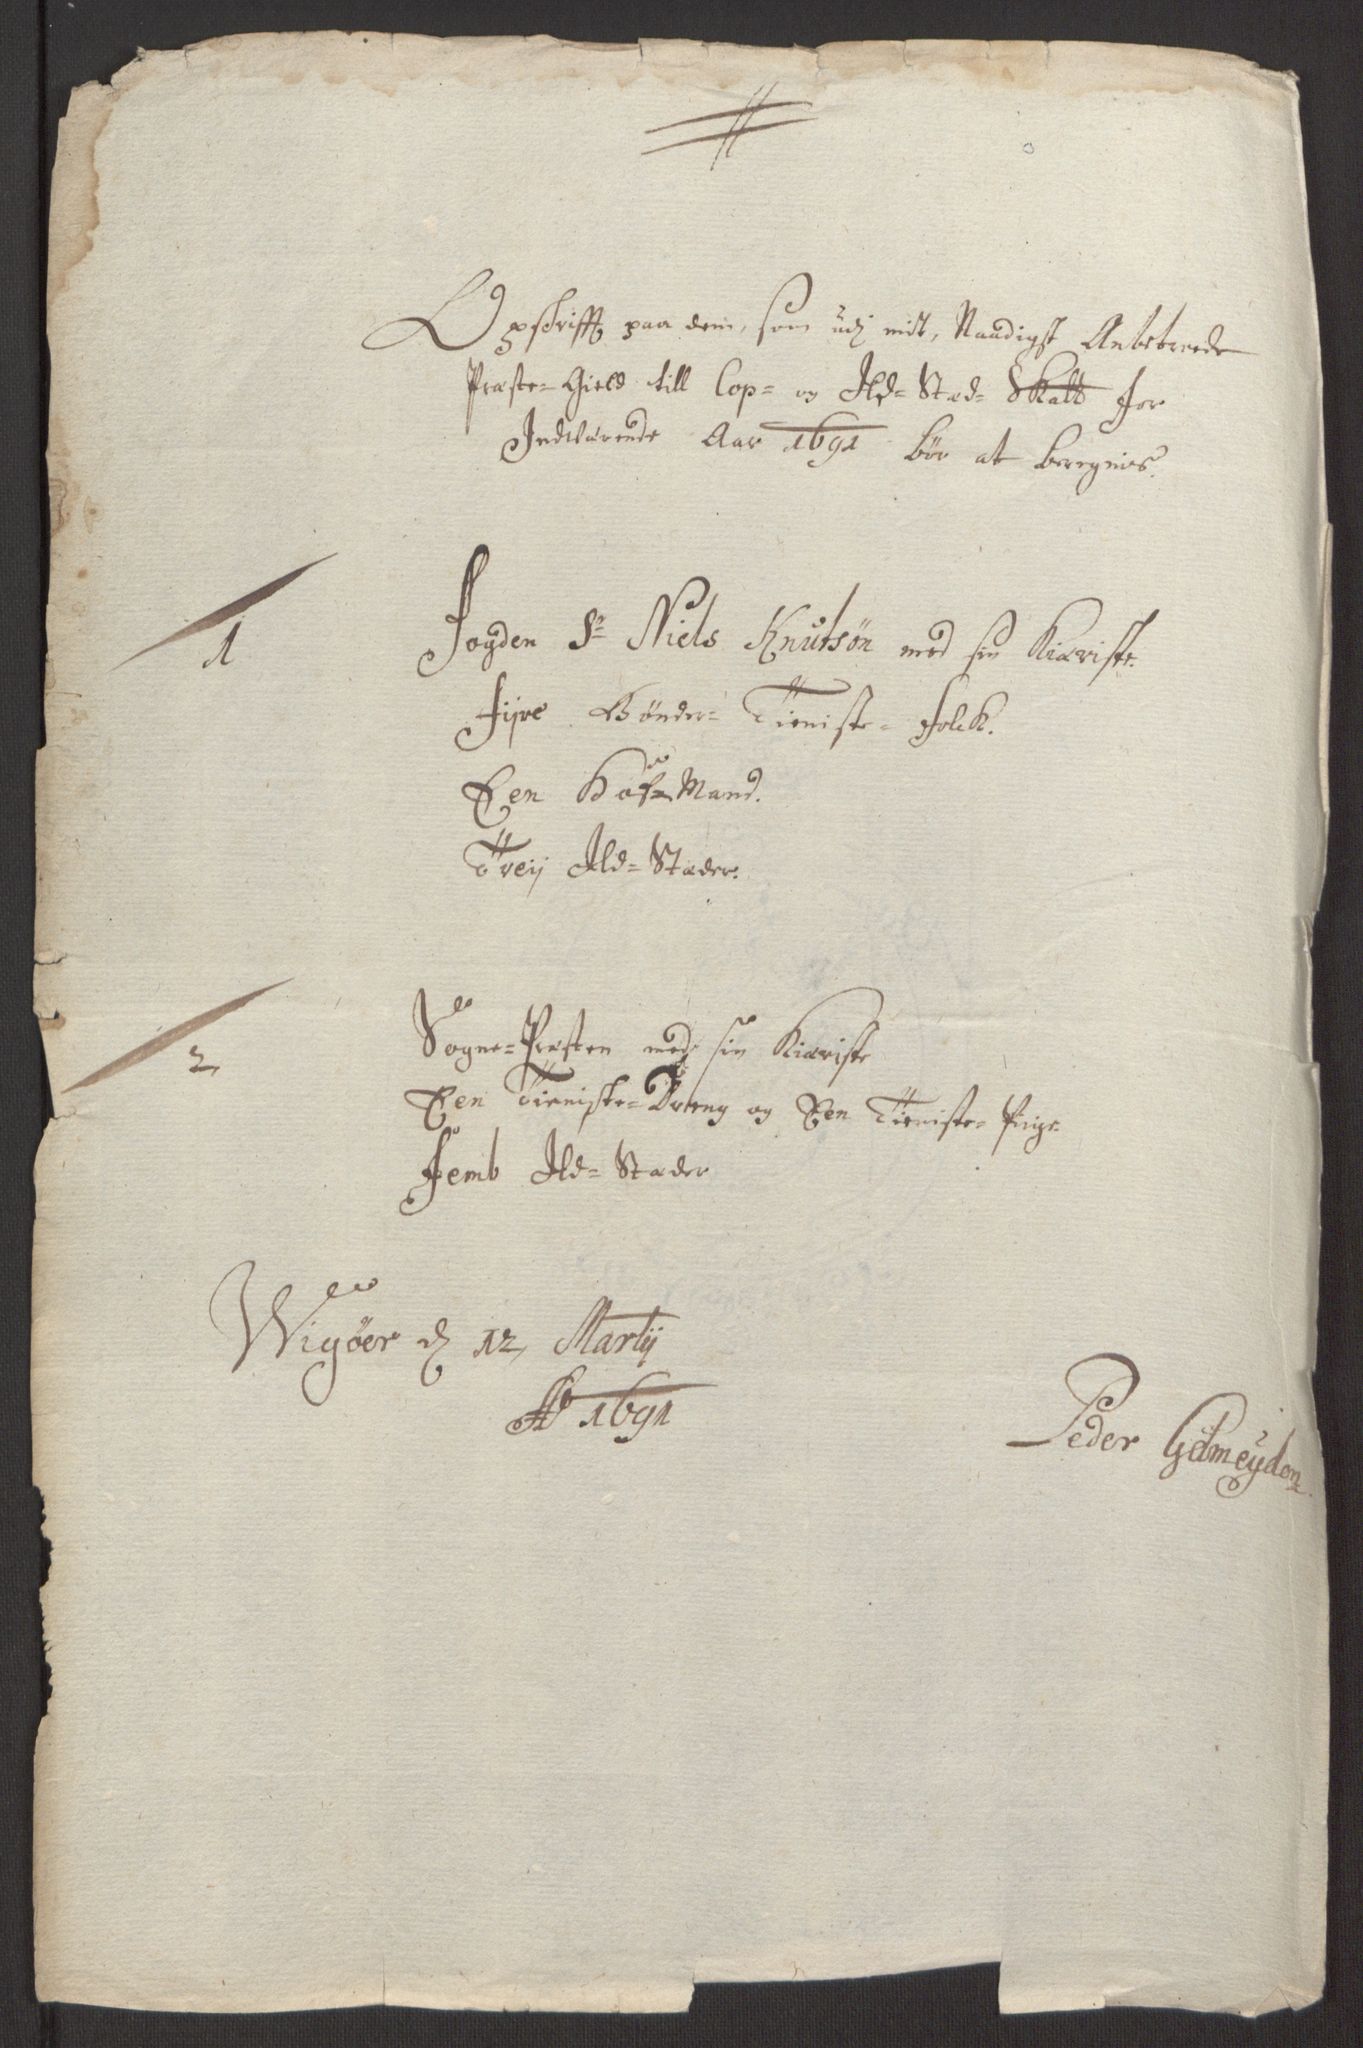 Opskrifft paa dem, som udj mit, Naadigst Anbetroede
Præste-Gield till Cop- og Ild-Sted-Skatt for
Indwærende Aar 1691 bør at beregnis.
1 Fogden Sr Niels Knutsøn med sin Kiæriste
Fijre Bønder-Tieniste-Folck.
Een Huus-Mand.
Treij Ild-Stæder.
2, Sogne-Præsten med sin Kiæriste
Een Tieniste-Dreng og Een Tieniste-Pige
Femb Ild-Stæder
Wigøer d 12, Martij
Ao 1691
Peder